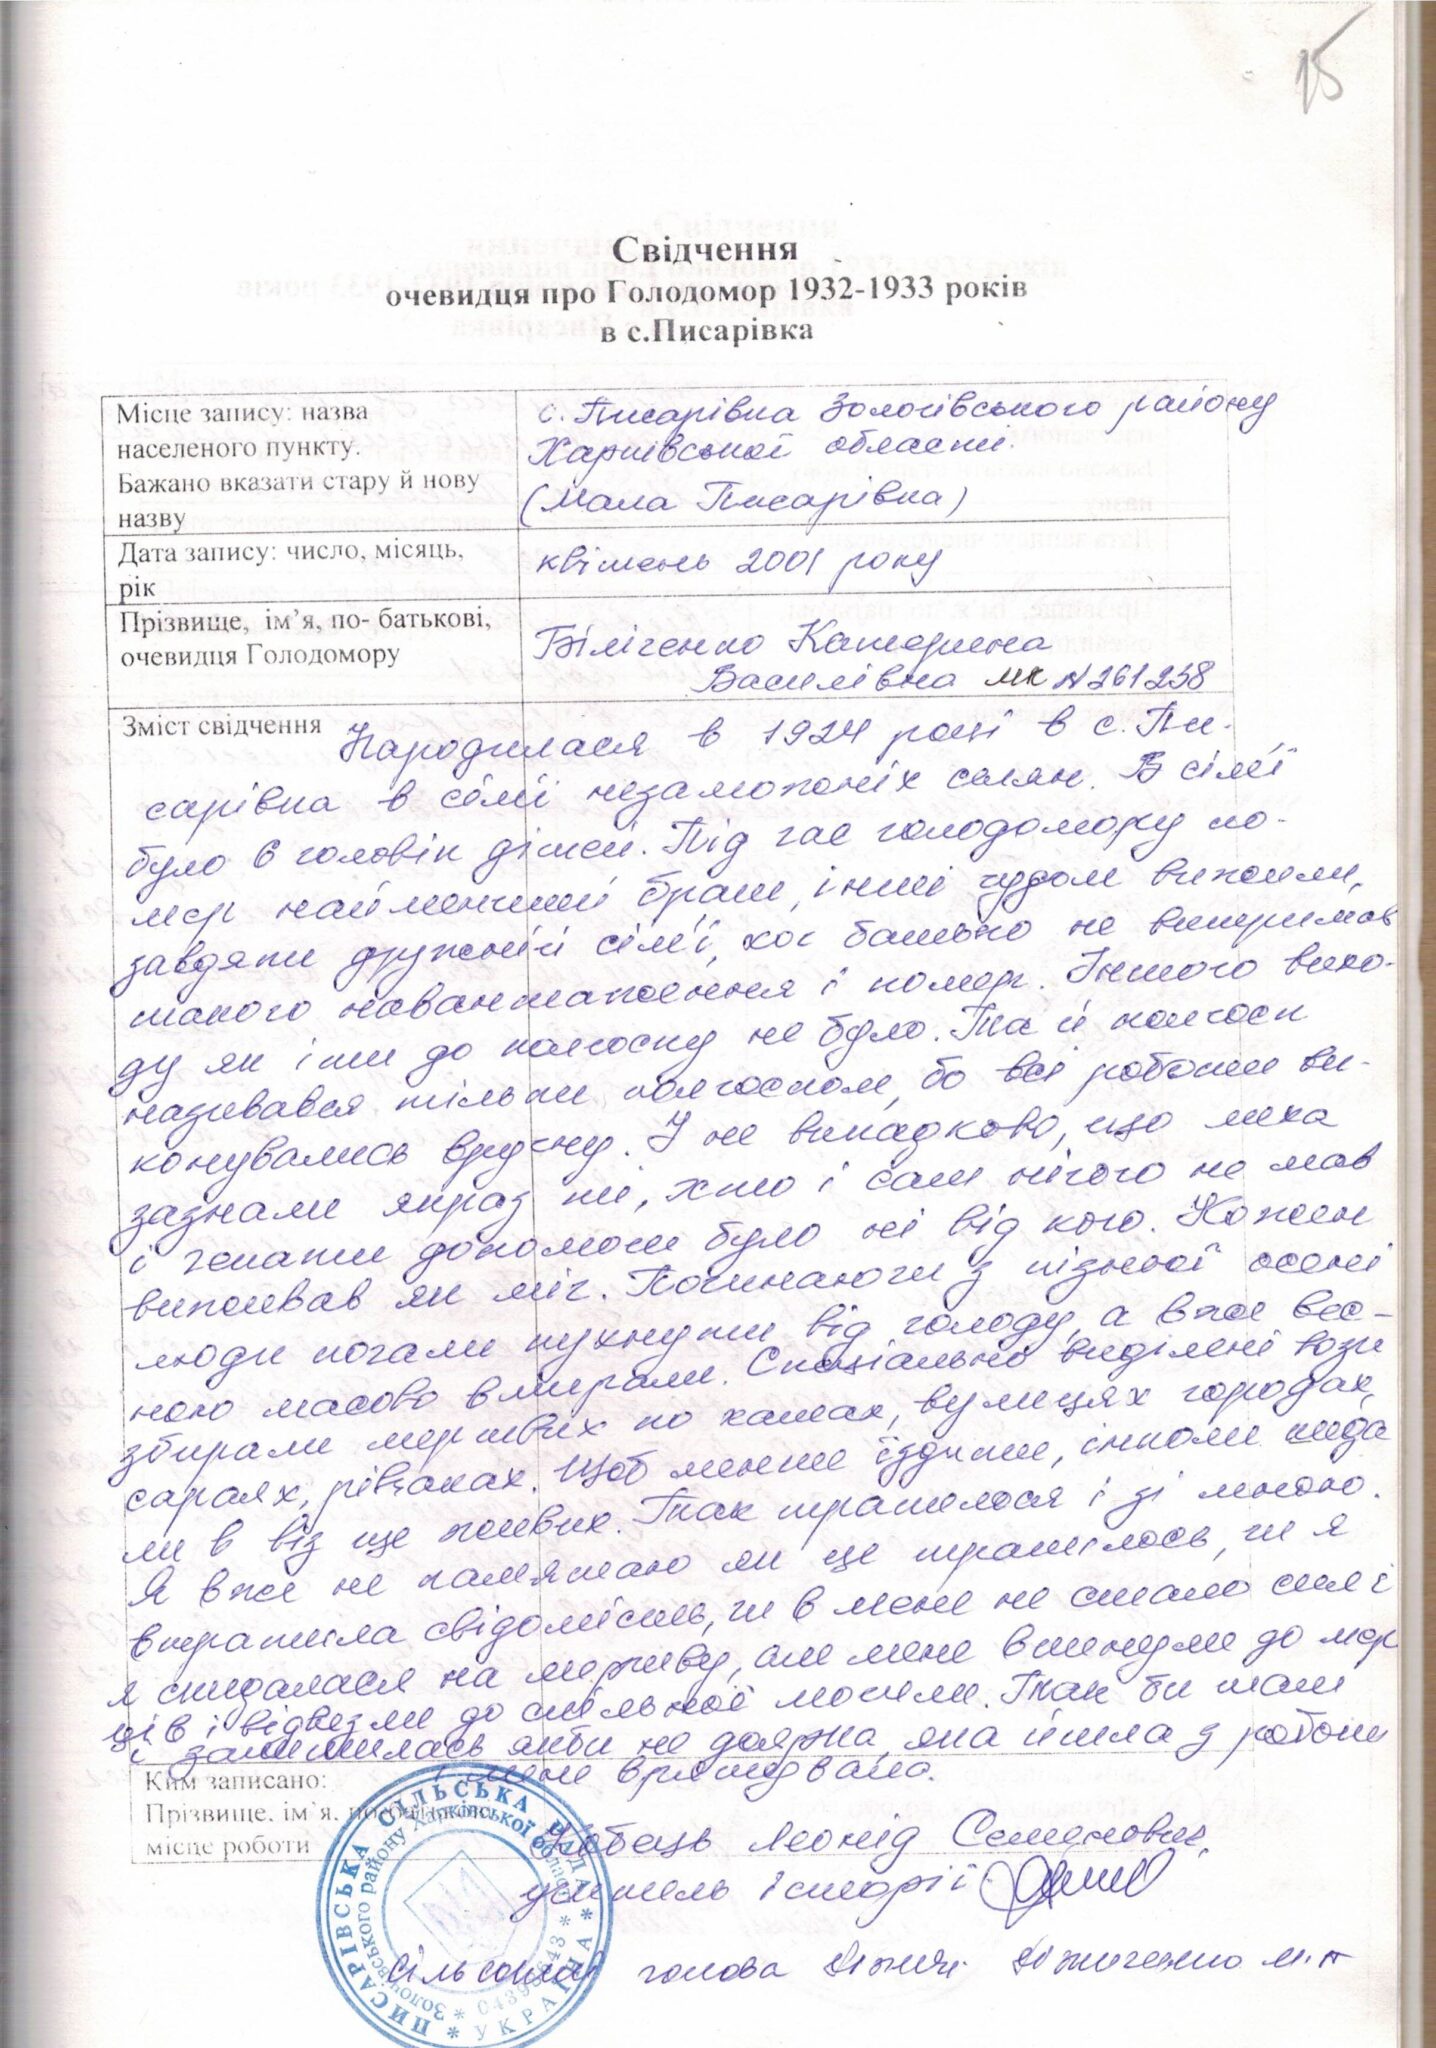 15
Свідчення
очевидця про Голодомор 1932-1933 років
в с.Писарівка
Місце запису: назва
населеного пункту.
Бажано вказати стару й нову
назву
с. Писарівка Золочівського району
Харківської області.
(Мала Писарівка)
Дата запису: число, місяць,
рік
квітень 2001 року
Прізвище, ім’я, по- батькові,
очевидця Голодомору
Біліченко Катерина
Василівна МК N261238
Зміст свідчення
Народилася в 1924 році в с. Пи-
сарівка в сім'ї незаможніх селян. В сім'ї
було 6 головік дітей. Під час голодомору по-
мер найменший брат, інші чудом вижили,
завдяки дружній сім'ї, хоч батько не витримав
такого навантаження і помер. Іншого вихо-
ду як іти до колгоспу не було. Та й колгосп
називався тільки колгоспом, бо всі роботи ви-
конувались вручну. І не випадково, що лиха
зазнали якраз ті, хто і сам нічого не мав
і чекати допомоги було ні від кого. Кожен
виживав як міг. Починаючи з пізньої осені
люди почали пухнути від голоду, а вже вес-
ною масово вмирали. Спеціально виділені вози
збирали мертвих по хатах, вулицях городах,
сараях, рівчаках. Щоб менше їздити, інколи кида
ли в віз ще живих. Так трапилося і зі мною.
Я вже не пам'ятаю як це трапилось, чи я
втратила свідомість, чи в мене не стало сил і
я скидалася на мертву, але мене вкинули до мер
ців і відвезли до спільної могили. Так би там
і залишилась якби не доярка, яка йшла з роботи
і мене врятувала.
Ким записано:
Прізвище, ім`я, по-батькові
місце роботи
Кобець Леонід Семенович,
учитель історії
Сільський голова М.П
ПИСАРІВСЬКА СІЛЬСЬКА РАДА * УКРАЇНА *
Золочівського району Харківської області * 04398643 *